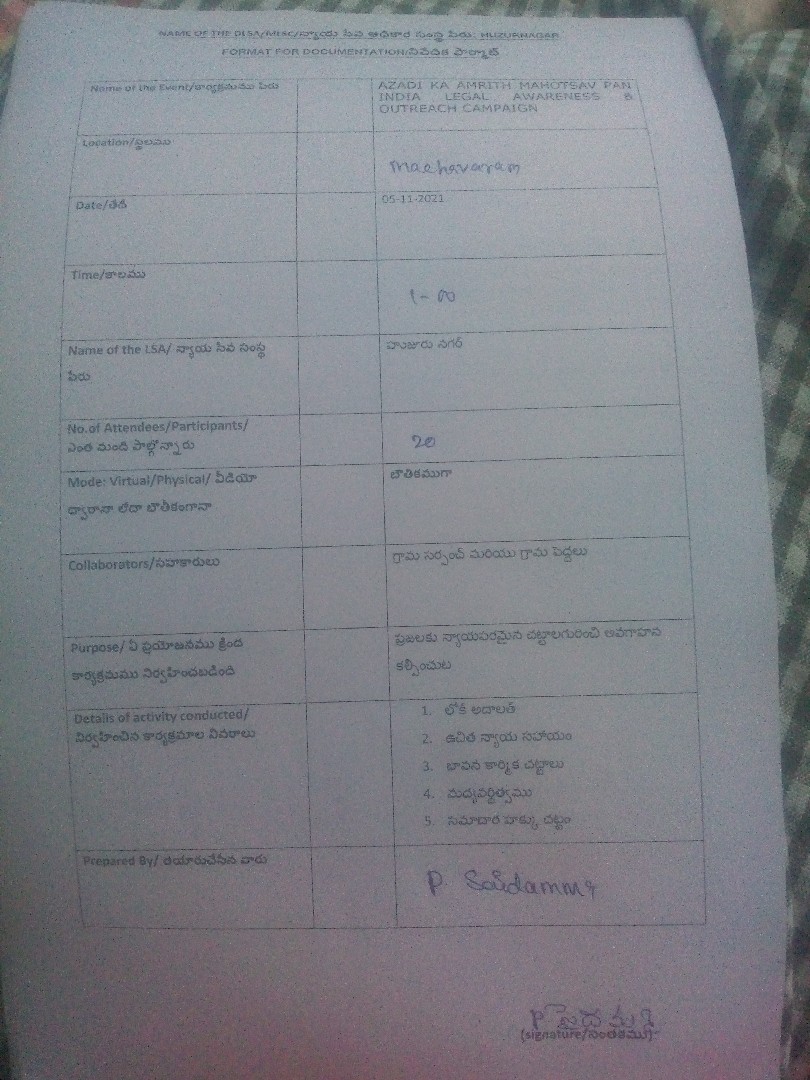 NAME OF THE DLSA/MLSC/న్యాయ సేవ అధికార సంస్థ పేరు: HUZURNAGAR
FORMAT FOR DOCUMENTATION/నివేదిక ఫార్మాట్
Name of the Event/కార్యక్రమము పేరు
AZADI KA AMRITH MAHOTSAV PAN
INDIA LEGAL AWARENESS &
OUTREACH CAMPAIGN
Location/స్థలము
Machavaram
Date/తేదీ
05-11-2021
Time/కాలము
1-00
Name of the LSA/ న్యాయ సేవ సంస్థ
పేరు
హుజురు నగర్
No.of Attendees/Participants/
ఎంత మంది పాల్గోన్నారు
20
Mode: Virtual/Physical/ వీడియో
ధ్వారానా లేదా బౌతికంగానా
బౌతికముగా
Collaborators/సహకారులు
గ్రామ సర్పంచ్ మరియు గ్రామ పెద్దలు
Purpose/ ఏ ప్రయోజనము క్రింద
కార్యక్రమము నిర్వహించబడింది
ప్రజలకు న్యాయపరమైన చట్టాలగురించి అవగాహన
కల్పించుట
Details of activity conducted/
నిర్వహించిన కార్యక్రమాల వివరాలు
1. లోక్ అదాలత్
2. ఉచిత న్యాయ సహాయం
3. బావన కార్మిక చట్టాలు
4. మద్యవర్తిత్వము
5. సమాచార హక్కు చట్టం
Prepared By/ తయారుచేసిన వారు
P Saidamma
P సైదమ్మ
(signature/సంతకము)